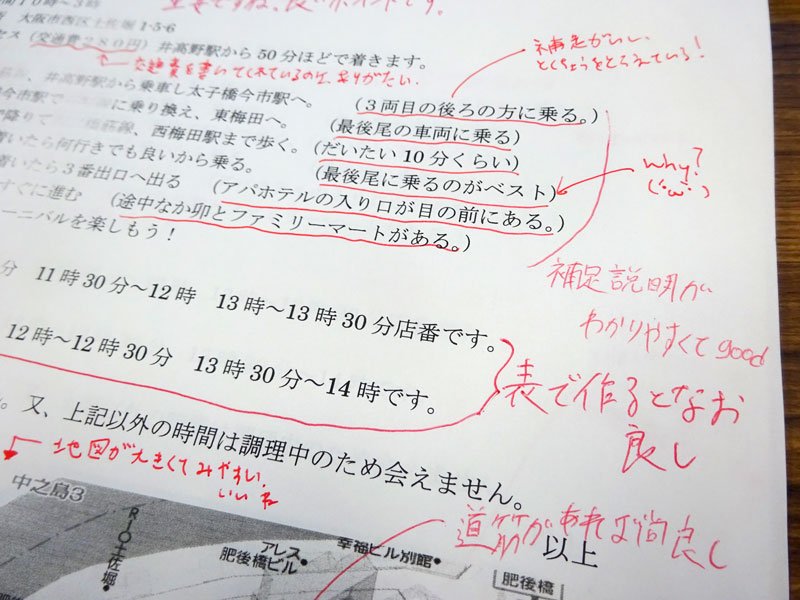 重要ですね、良いポイントです。
大阪市西区土佐堀 1-5-6
セス（交通費２８０円）井高野駅から 50 分ほどで着きます。
交通費を書いてくれているのは、ありがたい。
補足がいい、
とくちょうをとらえている！
、井高野駅から乗車し太子橋今市駅へ。（３両目の後ろの方に乗る。）
今市駅で に乗り換え、東梅田へ。（最後尾の車両に乗る）
降りて 、西梅田駅まで歩く。（だいたい 10 分くらい）
着いたら何行きでも良いから乗る。（最後尾に乗るのがベスト）
why?
(･ω･)
着いたら３番出口へ出る（アパホテルの入り口が目の前にある。）
すぐに進む（途中なか卯とファミリーマートがある。）
ーニバルを楽しもう！
補足説明が
わかりやすくて good
分 11 時 30 分～12 時 13 時～13 時 30 分店番です。
12 時～12 時 30 分 13 時 30 分～14 時です。
表で作るとなお
良し
。又、上記以外の時間は調理中のため会えません。
地図が大きくてみやすい。
いいね
道筋があれば尚良し
以上
中之島3
RIO土佐堀
アレス
肥後橋ビル
幸福ビル別館
肥後橋